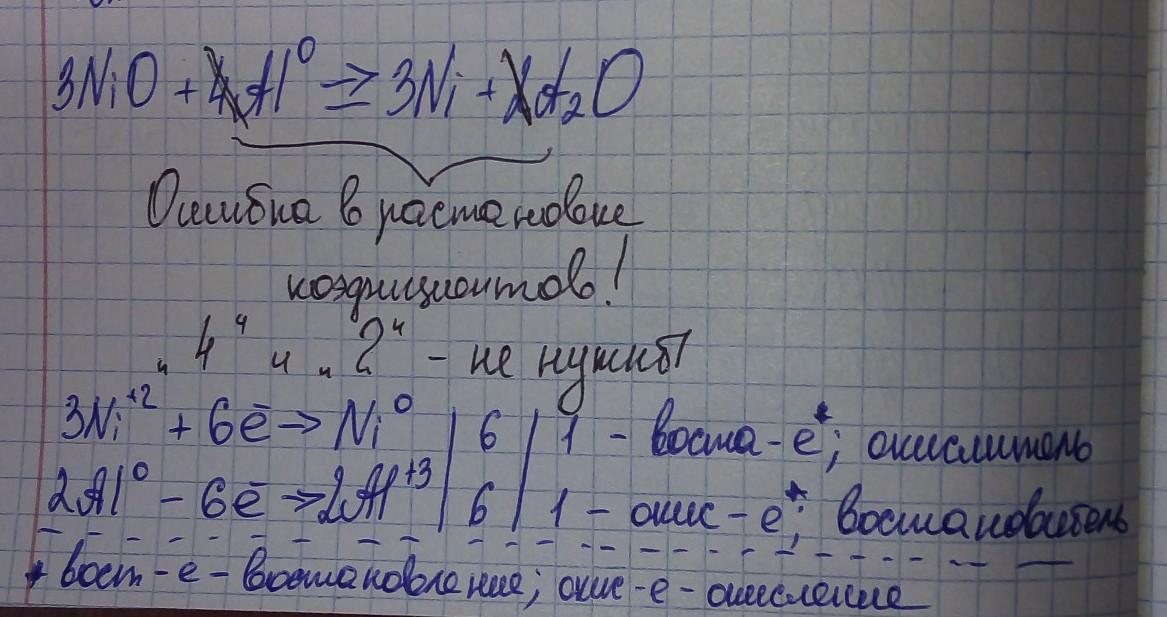 3NiO + 4Al⁰ ⇒ 3Ni + 2A₂O
Ошибка в растановке
коэфициентов!
„4“ и „2“ - не нужны
3Ni⁺² + 6ē → Ni⁰ | 6 | 1 - воста-е*; окислитель
2Al⁰ - 6ē → 2Al⁺³ | 6 | 1 - окис-е*; востановитель
* вост-е - востановление; окис-е - окисление